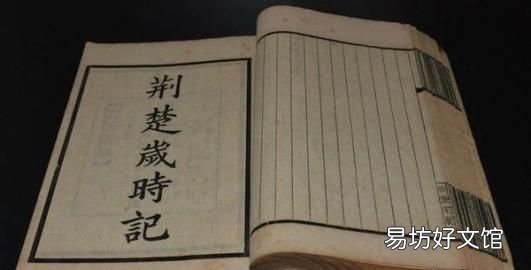 荆楚歲時記
易坊好文馆